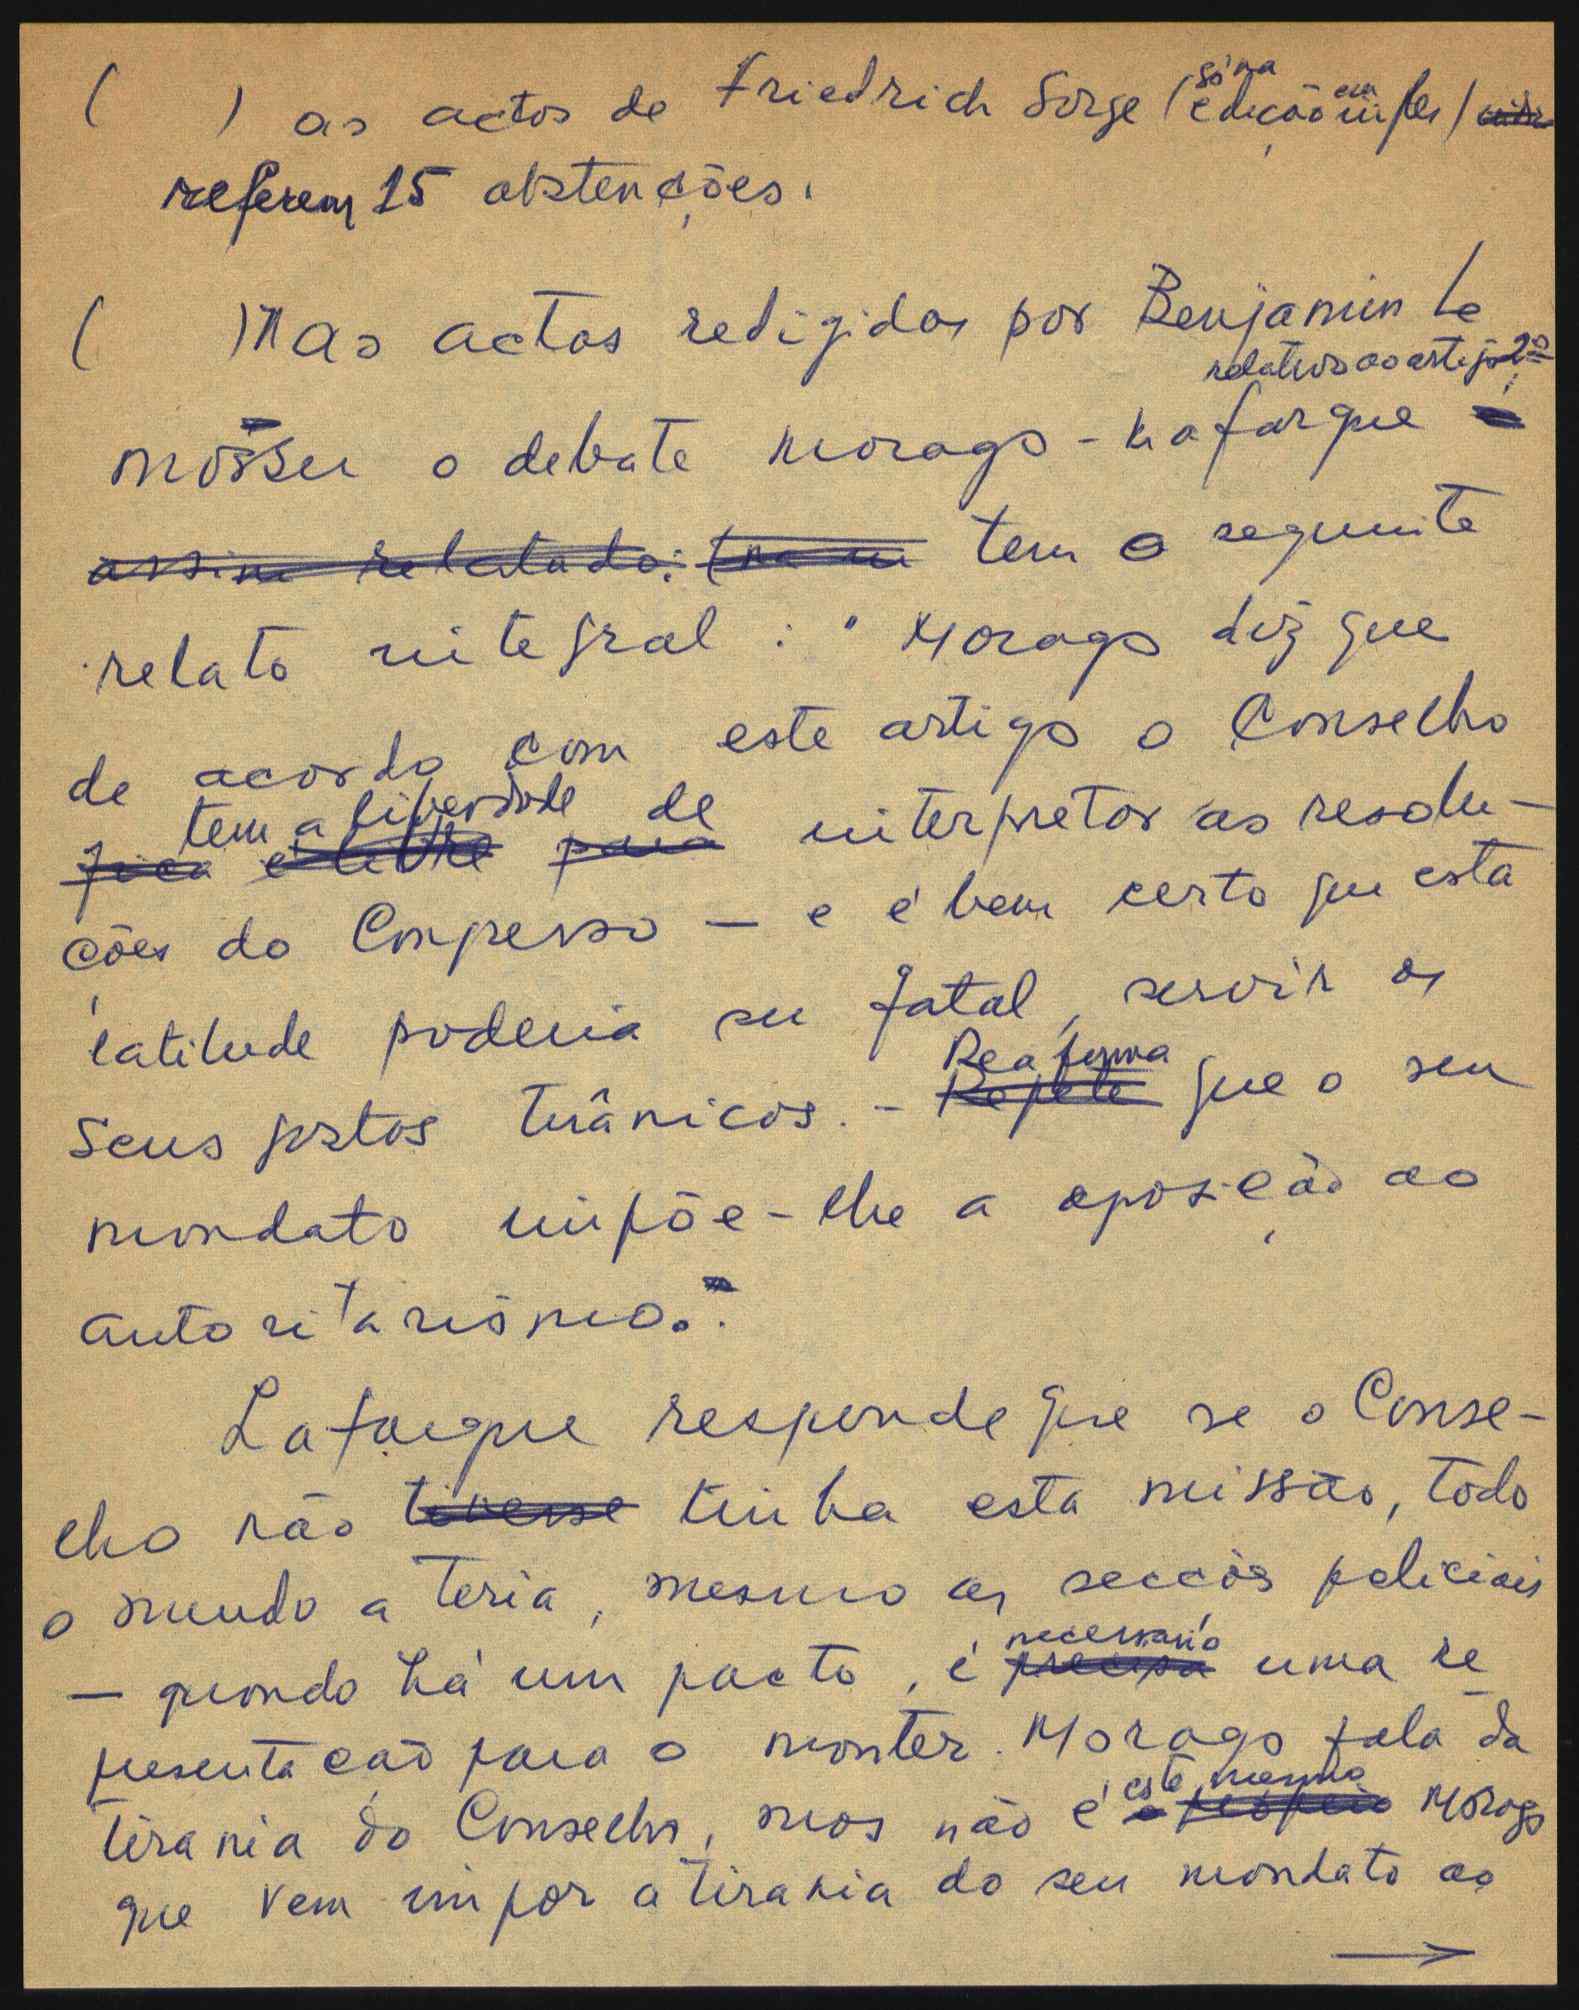 ( ) as actas de Friedrich Sorge (só na edição em inglês)
referem 15 abstenções.
( ) Nas actas redigidas por Benjamin Le
relativo ao artigo 2º
mossu o debate Morago - Lafargue
assim relatado: tem o seguinte
relato integral : " Morago diz que
de acordo com este artigo o Conselho
tem a liberdade de
fica é livre para interpretar as resolu-
ções do Congresso — e é bem certo que esta
latitude poderia ser fatal, servir os
Reafirma
seus gostos tirânicos. - Repete que o seu
mandato impõe-lhe a oposição ao
autoritarismo.
Lafargue responde que se o Conse-
lho não tivesse tinha esta missão, todo
o mundo a teria, mesmo as secções policiais
necessário
— quando há um pacto, é precisa uma re
presentação para o manter. Morago fala da
este mesmo
tirania do Conselho, mas não é o próprio Morago
que vem impor a tirania do seu mandato ao
→